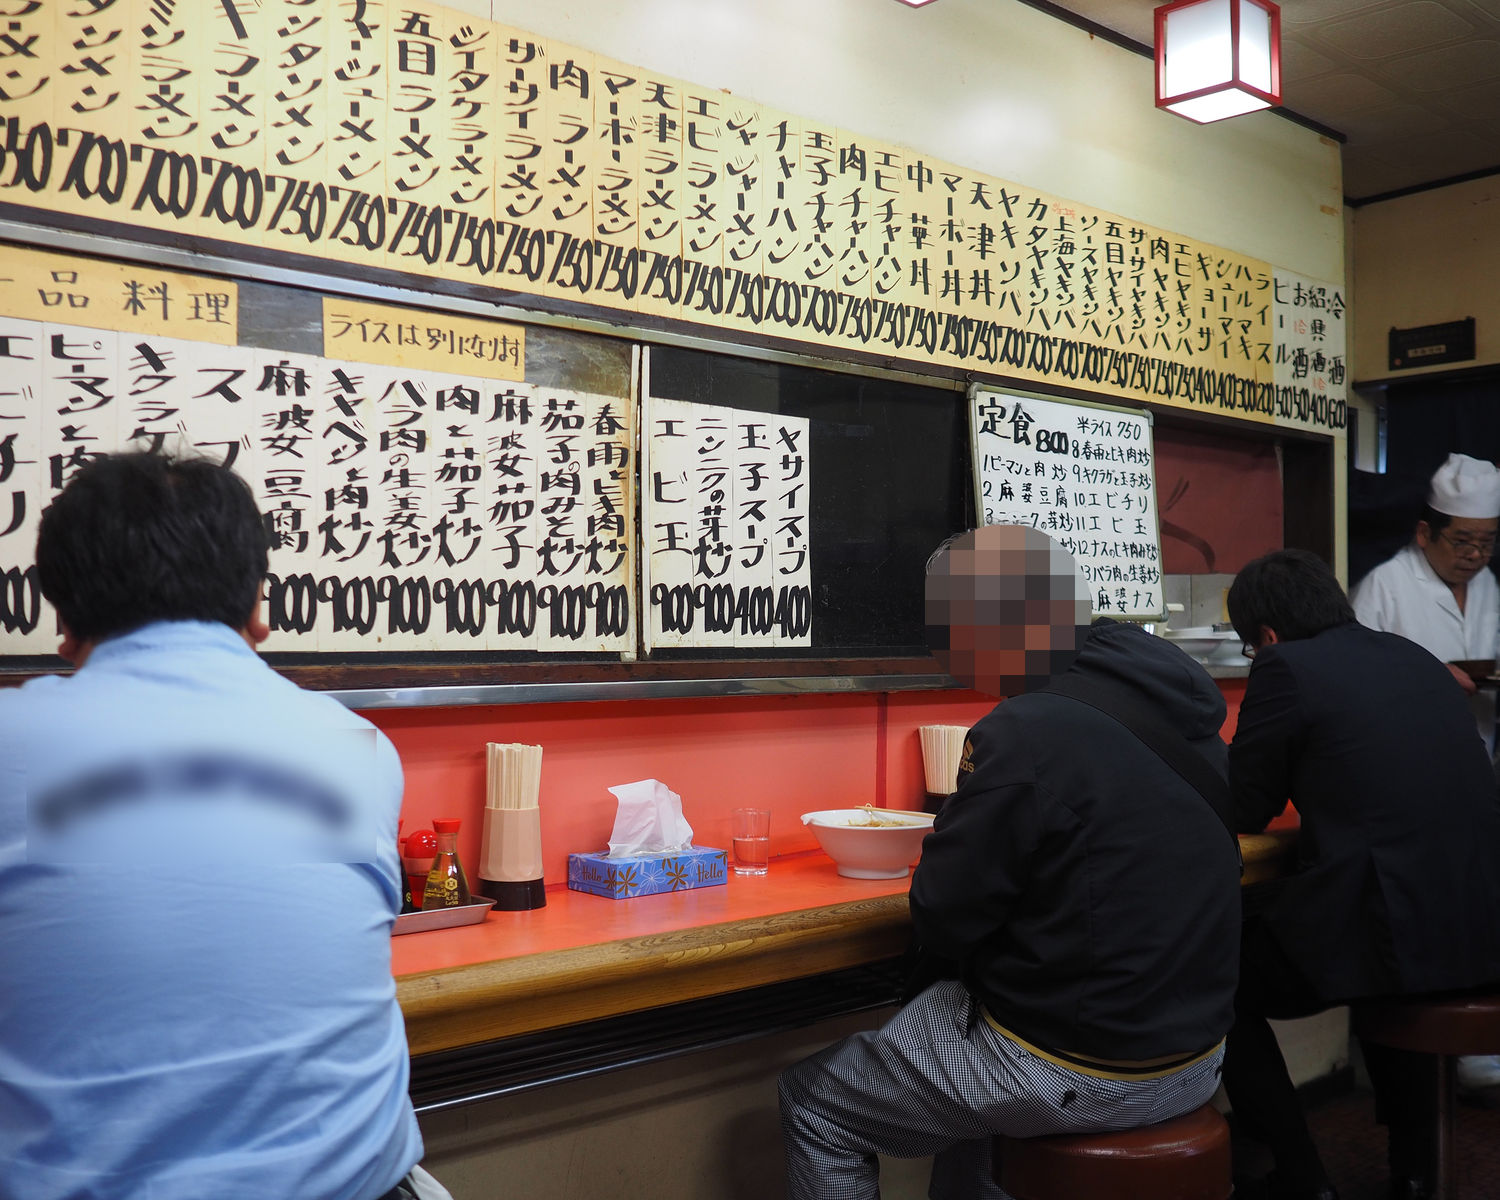 五目ラーメン 750
シイタケラーメン 750
ザーサイラーメン 750
肉ラーメン 750
マーボーラーメン 750
天津ラーメン 750
エビラーメン 750
ジャジャーメン 750
チャーハン 700
玉子チャーハン 700
肉チャーハン 750
エビチャーハン 750
中華丼 750
マーボー丼 750
天津丼 750
ヤキソバ 700
カタヤキソバ 700
上海ヤキソバ 700
ソースヤキソバ 700
五目ヤキソバ 750
ザーサイヤキソバ 750
肉ヤキソバ 750
エビヤキソバ 750
ギョーザ 400
シューマイ 400
ハルマキ 300
ライス 200
ビール 500
お酒 500
紹興酒 400
冷酒 600
一品料理
ライスは別になります
スブ
麻波女豆腐 900
キャベツと肉炒 900
バラ肉の生姜炒 900
肉と茄子炒 900
麻波女茄子 900
茄子肉みそ炒 900
春雨とヒキ肉炒 900
エビ玉 900
ニンニクの芽炒 900
玉子スープ 400
ヤサイスープ 400
定食 800
半ライス 750
1.ピーマンと肉炒
2 麻婆豆腐
3 ニンニクの芽炒
8 春雨とヒキ肉炒
9 キクラゲと玉子炒
10.エビチリ
11 エビ玉
12.ナスのヒキ肉みそ炒
13 バラ肉の生姜炒
麻婆ナス
Hello
Hello